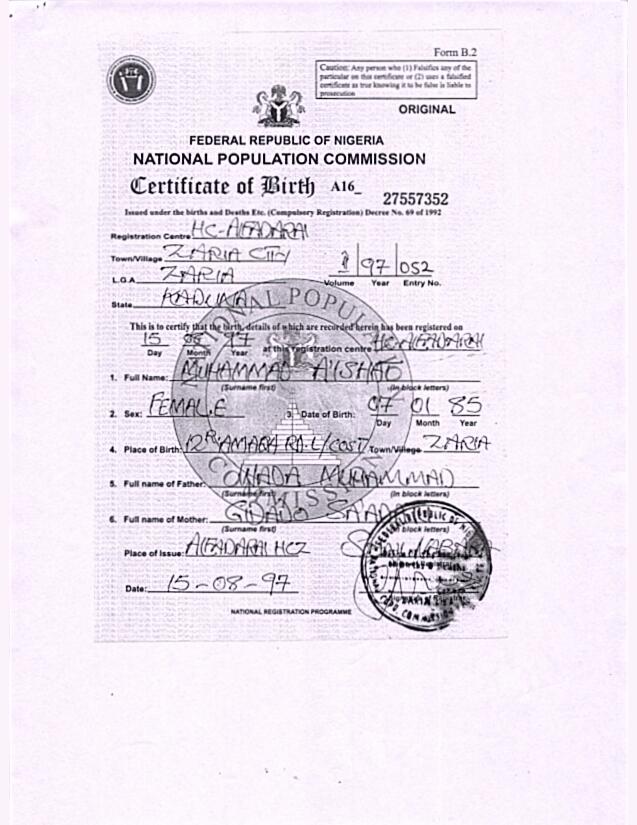 Form B.2
Caution: Any person who (1) Falsifies any of the
particular on this certificate or (2) uses a falsified
certificate as true knowing it to be false is liable to
prosecution
ORIGINAL
FEDERAL REPUBLIC OF NIGERIA
NATIONAL POPULATION COMMISSION
Certificate of Birth A16_ 27557352
Issued under the births and Deaths Etc. (Compulsory Registration) Decree No. 69 of 1992
Registration Centre HC-ALFADARAI
Town/Village ZARIA CITY
L.G.A ZARIA
1 97 052
Volume Year Entry No.
State KADUNA
This is to certify that the birth, details of which are recorded herein has been registered on
15 08 97 at this registration centre HC-ALFADARAI
Day Month Year
1. Full Name: MUHAMMAD A'ISHAT
(Surname first) (In block letters)
2. Sex: FEMALE 3. Date of Birth: 07 01 85
Day Month Year
4. Place of Birth: AMARA RD. L/COST Town/Village ZARIA
5. Full name of Father: MUHAMMAD
(Surname first) (In block letters)
6. Full name of Mother: GIDADO
(Surname first) (In block letters)
Place of Issue: ALFADARAI HCZ
Date: 15-08-97
NATIONAL REGISTRATION PROGRAMME